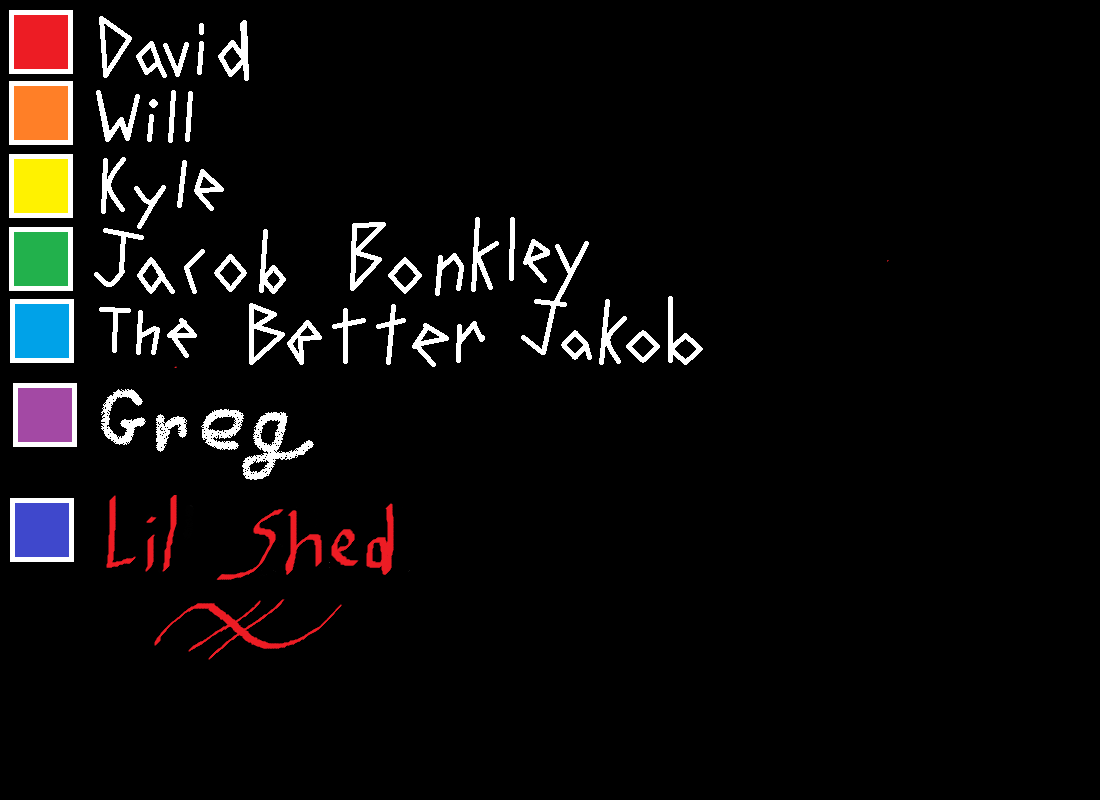 David
Will
Kyle
Jacob Bonkley
The Better Jakob
Greg
Lil Shed